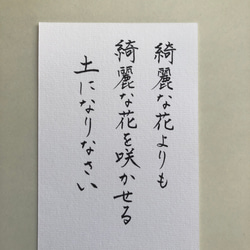 綺麗な花よりも
綺麗な花を咲かせる
土になりなさい